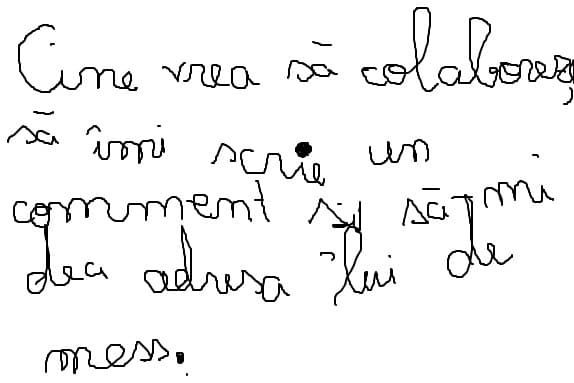 Cine vrea să colaboreze,
să îmi scrie un
comment și să-mi
dea adresa lui de
mess.